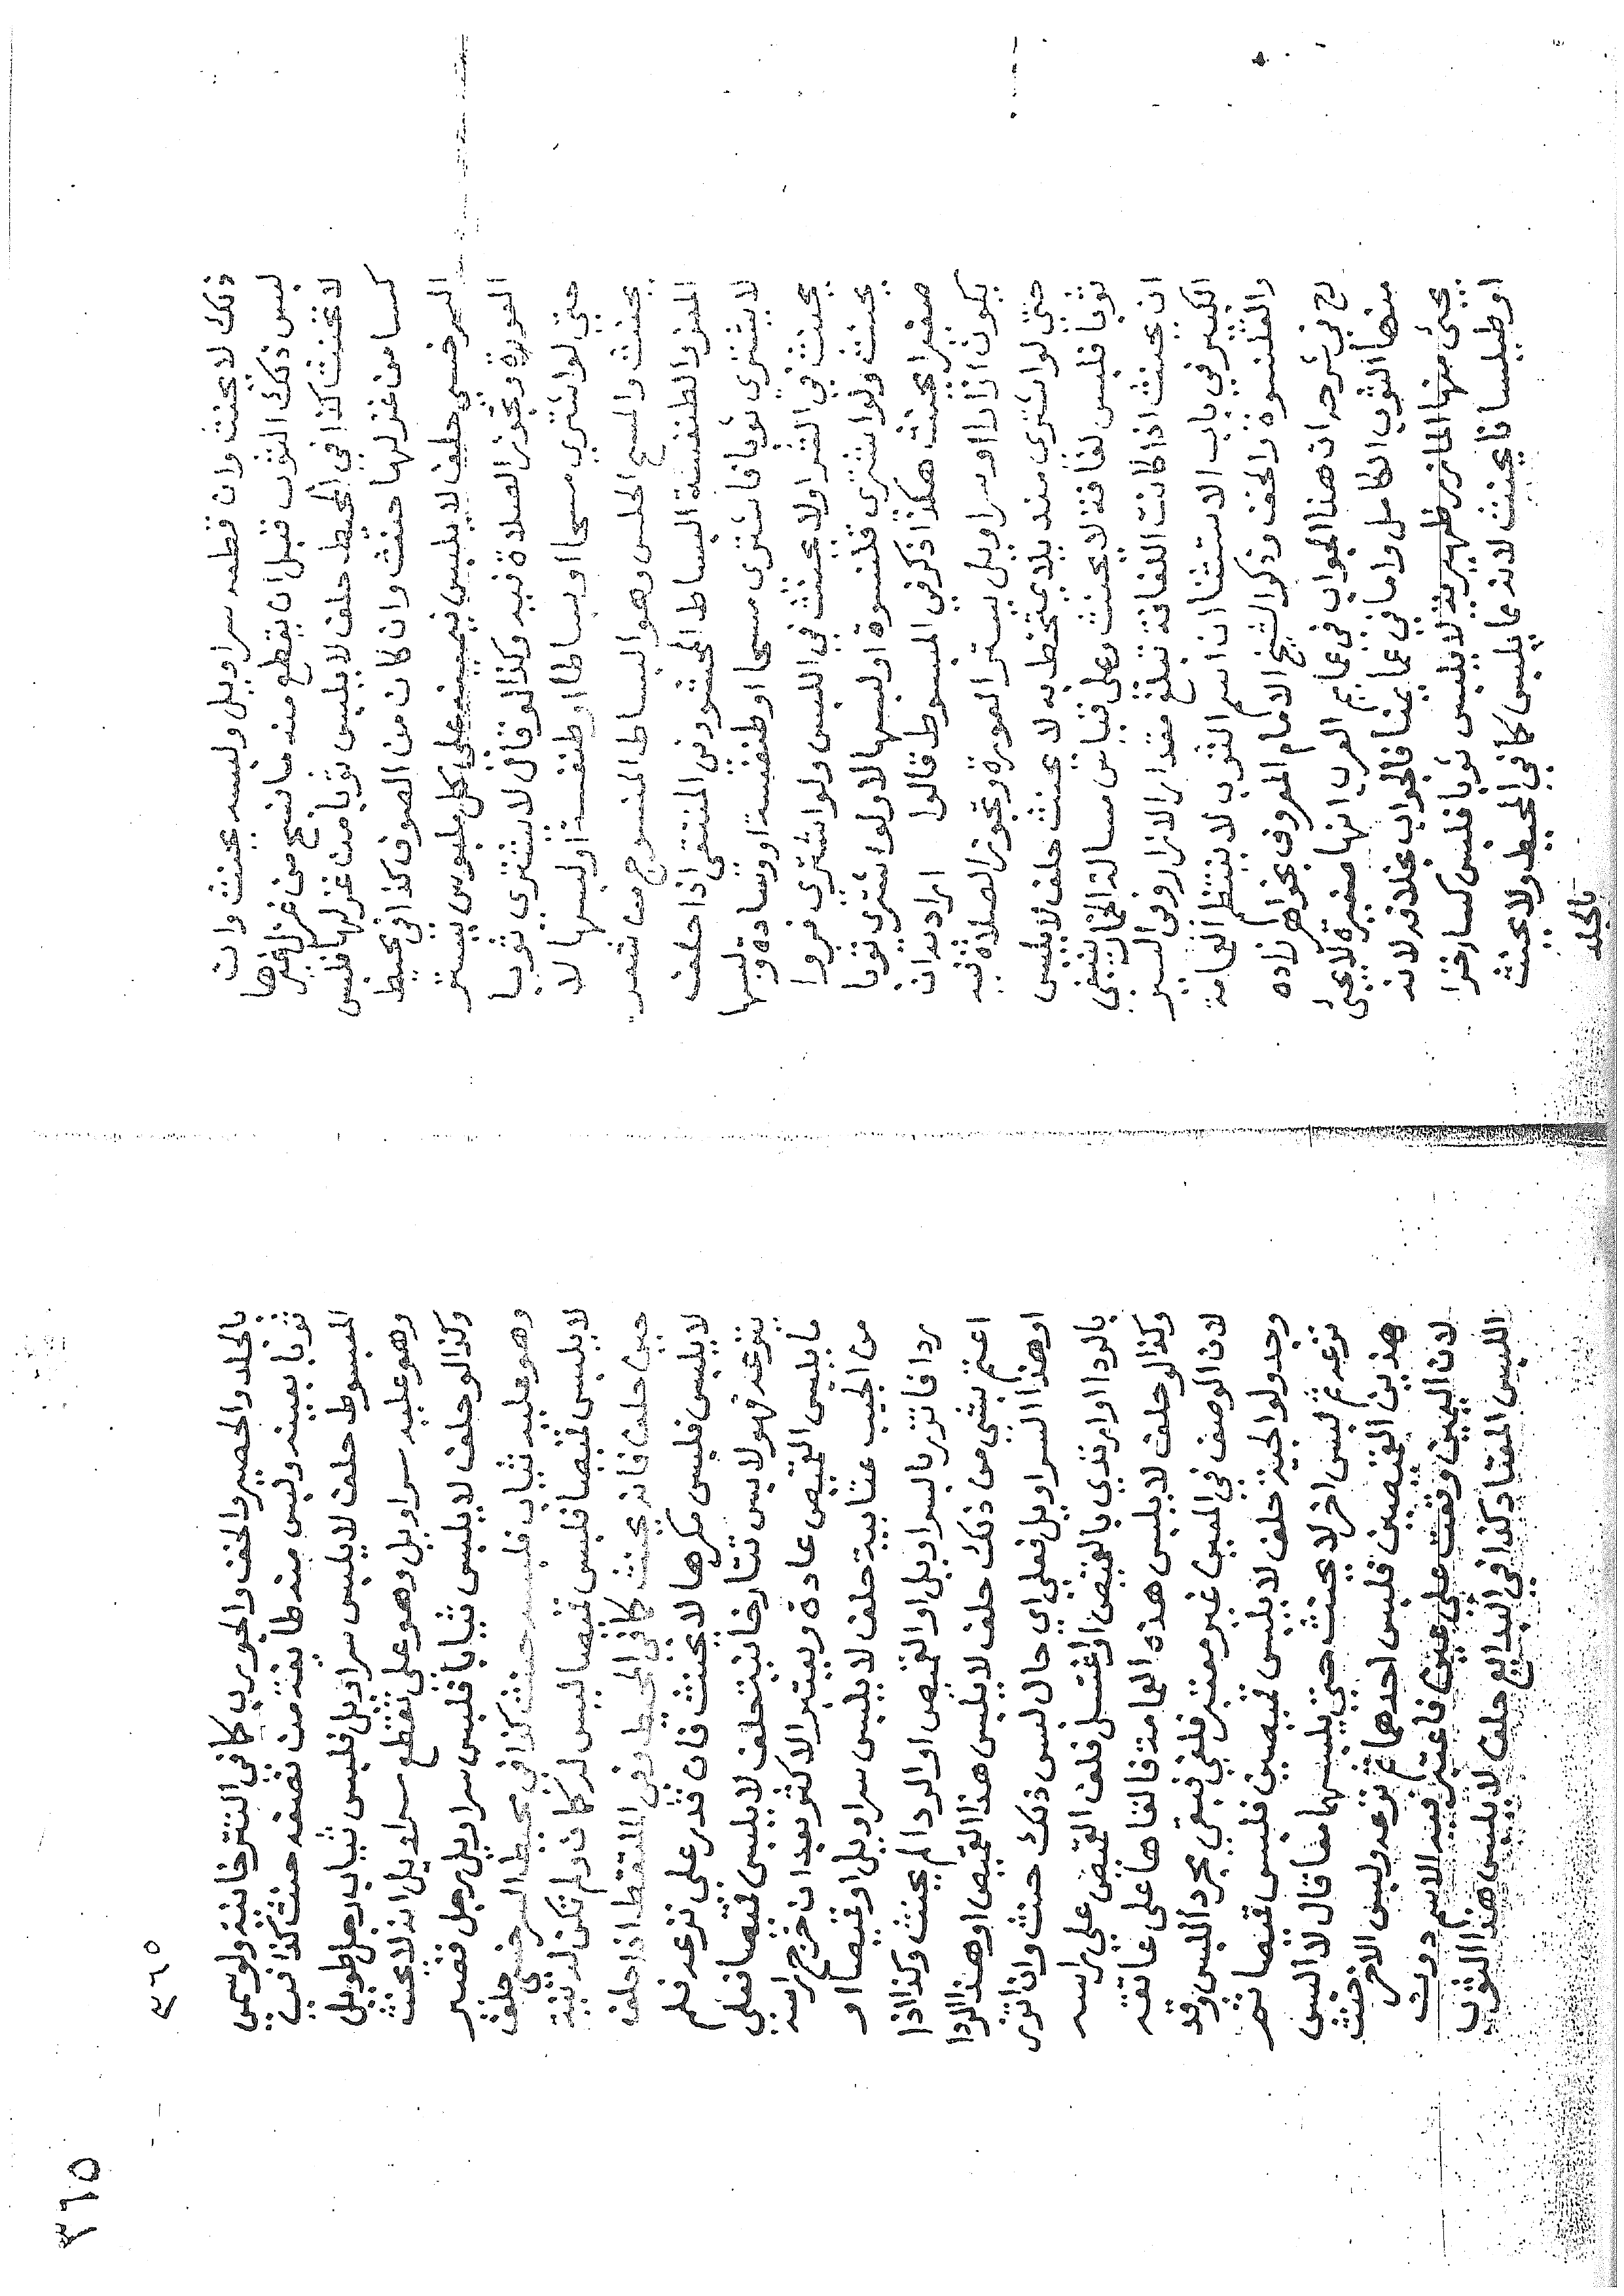 ذلك لا يحنث وان قطعه سراويل ولبسه يحنث وان
لبس ذلك الثوب قبل ان يقطع منه ما نسج من غزل غيرها
لا يحنث كذا في المحيط حلف لا يلبس ثوبا من غزلها فلبس
كسا من غزلها حنث وان كان من الصوف كذا في محيط
السرخسي حلف لا يلبس فيمينه على كل ملبوس يستر
العورة وتجوز الصلاة فيه وكذا لو قال لا يشتري ثوبا
حتى لو اشتري مسحا او بساطا او طنفسة او لبسها لا
يحنث والمسح الحلس وهو البساط المنسوج من شعر
المعز والطنفسة البساط المحشو وفى المنتقى اذا حلف
لا يشتري ثوبا فاشترى مسحا او طنفسة او وسادة ولبسها
يحنث في الشرا ولا يحنث في اللبس ولو اشتري فروا
يحنث ولو اشترى قلنسوة او لبسها لا ولو اشتري ثوبا
صغيرا يحنث هكذا ذكر في المبسوط قالوا اراد به ان
يكون ازارا او سراويل يستر العورة وتجوز الصلاة فيه
حتى لو اشترى منديلا يتمخط به لا يحنث حلف لا يلبس
ثوبا فلبس لفافة لا يحنث وعلى قياس مسالة الخمار ينبغي
ان يحنث اذا كانت اللفافة تبلغ مقدار الازار وفى السير
الكبير في باب الاستثنا ان اسم الثوب لا ينتظم العمامة
والقلنسوة والخف وذكر الشيخ الامام المعروف بخواهر زاده
رح في شرحه ان هذا الجواب في عمايم العرب انها صغيرة لا يجئ
منها الثوب الكامل واما في عمايمنا فالجواب بخلافه لانه
يجئ منها المازر ظهيرية لا يلبس ثوبا فلبس كسا خز
او طيلسانا يحنث لانه مما يلبس كما في المحيط ولا يحنث
بالجلد
٣٦٥
٣٦٥
بالجلد والحصير والخف والجورب كما في التترخانية ولو سمى
ثوبا بعينه ولبس منه طايفة من نصفه حنث كذا في
المبسوط حلف لا يلبس سراويل فلبس ثياب رجل طويل
وهو عليه سراويل وهو على تقطع سراويل انه لا يحنث
وكذا لو حلف لا يلبس ثيابا فلبس سراويل رجل قصير
وهو عليه ثياب فلبسه حنث كذا في محيط السرخسي حلف
لا يلبس قميصا فلبس قميصا ليس له كمان ولم تكن له نية
حين حلف فانه يحنث كما في المحيط وفى الملتقط اذا حلف
لا يلبس فلبس مكرها لا يحنث فان قدر على نزعه فلم
ينزعه فهو لابس تتارخانية حلف لا يلبس قميصا فعلى
ما يلبس القميص عادة ويعتبر الاكثر بعد ان خرج راسه
من الجيب عتابية حلف لا يلبس سراويل او قميصا او
ردا فاتزر بالسراويل او القميص او الردا لم يحنث وكذا اذا
اعتم بشي من ذلك حلف لا يلبس هذا القميص او هذا الردا
او هذا السراويل فعلى اي حال لبس ذلك حنث وان اتزر
بالردا او ارتدي بالقميص او اغتسل فلف القميص على راسه
وكذا لو حلف لا يلبس هذه العمامة فالقاها على عاتقه
لان الوصف في المعين غير معتبر فلغي فبقي مجرد اللبس وقد
وجد ولو الجية حلف لا يلبس قميصين فلبس قميصا ثم
نزعه ثم لبس اخر لا يحنث حتى يلبسهما معا قال لا البس
هذين القميصين فلبس احدهما ثم نزعه ولبس الاخر حنث
لان اليمين وقعت على عين فاعتبر فيه الاسم دون
اللبس المعتاد كذا في البدايع حلف لا يلبس هذا الثوب